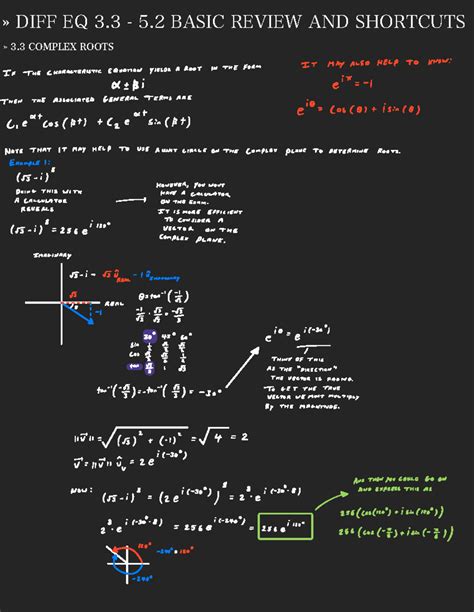 » DIFF EQ 3.3 - 5.2 BASIC REVIEW AND SHORTCUTS
» 3.3 COMPLEX ROOTS
IF THE CHARACTERISTIC EQUATION YIELDS A ROOT IN THE FORM
α ± βi
THEN THE ASSOCIATED GENERAL TERMS ARE
C₁e^{αt}cos(βt) + C₂e^{αt}sin(βt)
IT MAY ALSO HELP TO KNOW:
e^{iπ} = -1
e^{iθ} = cos(θ) + i sin(θ)
NOTE THAT IT MAY HELP TO USE A UNIT CIRCLE ON THE COMPLEX PLANE TO DETERMINE ROOTS.
EXAMPLE 1:
(√3 - i)^8
DOING THIS WITH
A CALCULATOR
REVEALS
(√3 - i)^8 = 256e^{i 120°}
HOWEVER, YOU WON'T
HAVE A CALCULATOR
ON THE EXAM.
IT IS MORE EFFICIENT
TO CONSIDER A
VECTOR ON THE
COMPLEX PLANE.
IMAGINARY
REAL
√3
-1
θ = tan⁻¹(-1/√3)
30° 45° 60°
sin
cos
tan
tan⁻¹(-√3/3) = -tan⁻¹(√3/3) = -30°
e^{iθ} = e^{i(-30°)}
THINK OF THIS
AS THE "DIRECTION"
THE VECTOR IS FACING.
TO GET THE TRUE
VECTOR WE MUST MULTIPLY
BY THE MAGNITUDE.
||v|| = √((√3)² + (-1)²) = √4 = 2
v = ||v|| û_v = 2e^{i(-30°)}
NOW: (√3 - i)^8 = (2e^{i(-30°)})^8 = 2^8 e^{i(-30°·8)}
2^8·e^{i(-30°·8)} = 256e^{i(-240°)} = 256e^{i 120°}
AND THEN YOU COULD GO ON
AND EXPRESS THIS AS
256(cos(120°) + i sin(120°))
120°
-240° = 120°
-240°